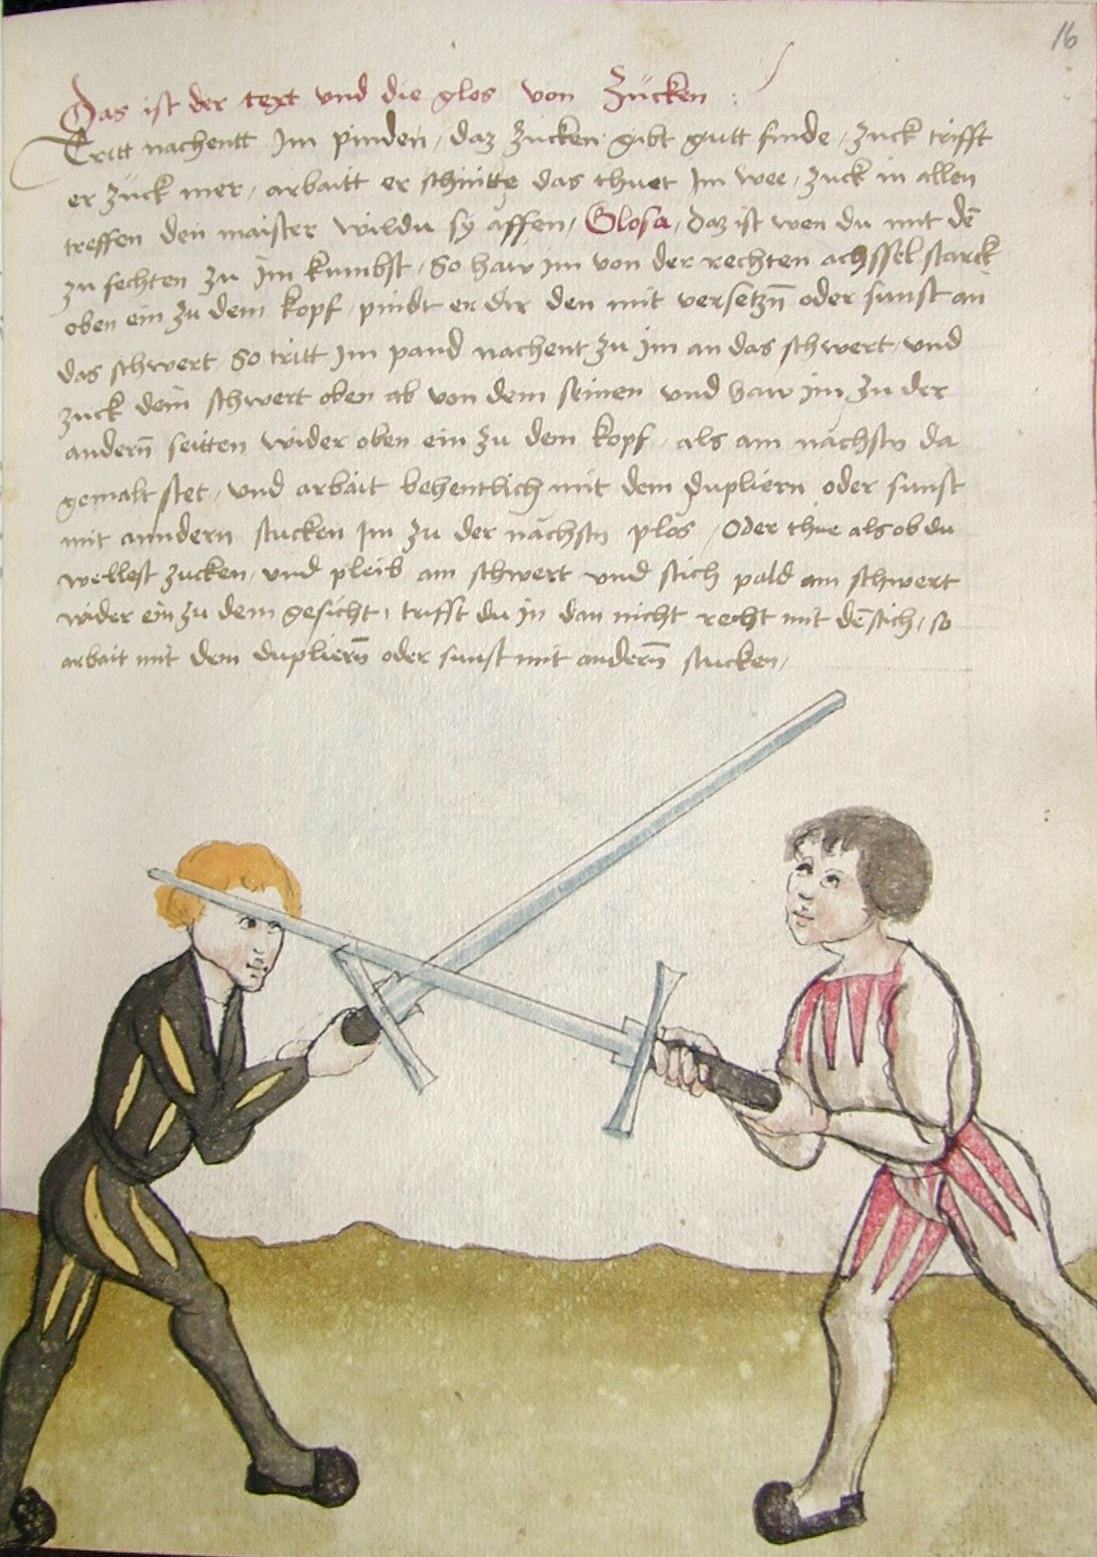 16
Das ist der text vnd die glos von Zücken :
Tritt nachentt Im pinden / daz zucken gibt gutt finde / zuck trifft
er zück mer / arbaitt er schnitte das thuet Im wee / zuck in allen
treffen den maister wildu sy äffen / Glosa / daz ist wen du mit dē
zu fechten zu im kumbst / So haw im von der rechten achssel starck
oben ein zu dem kopf / pindt er dir den mit versetzn̄ oder sunst an
das schwert So tritt Im pand nachent zu im an das schwert / vnd
zuck dein schwert oben ab von dem seinen vnd haw im zu der
andern̄ seitten wider oben ein zu dem kopf / als am nächstn da
gemalt stet / vnd arbait behentlich mit dem dupliern oder sunst
mit anndern stucken Im zu der nächstn plos / Oder thue als ob du
wellest zucken / vnd pleib am schwert vnd stich pald am schwert
wider ein zu dem gesicht / trifft du in dan nicht recht mit dē stich / so
arbait mit dem dupliern̄ oder sunst mit andern̄ stucken /